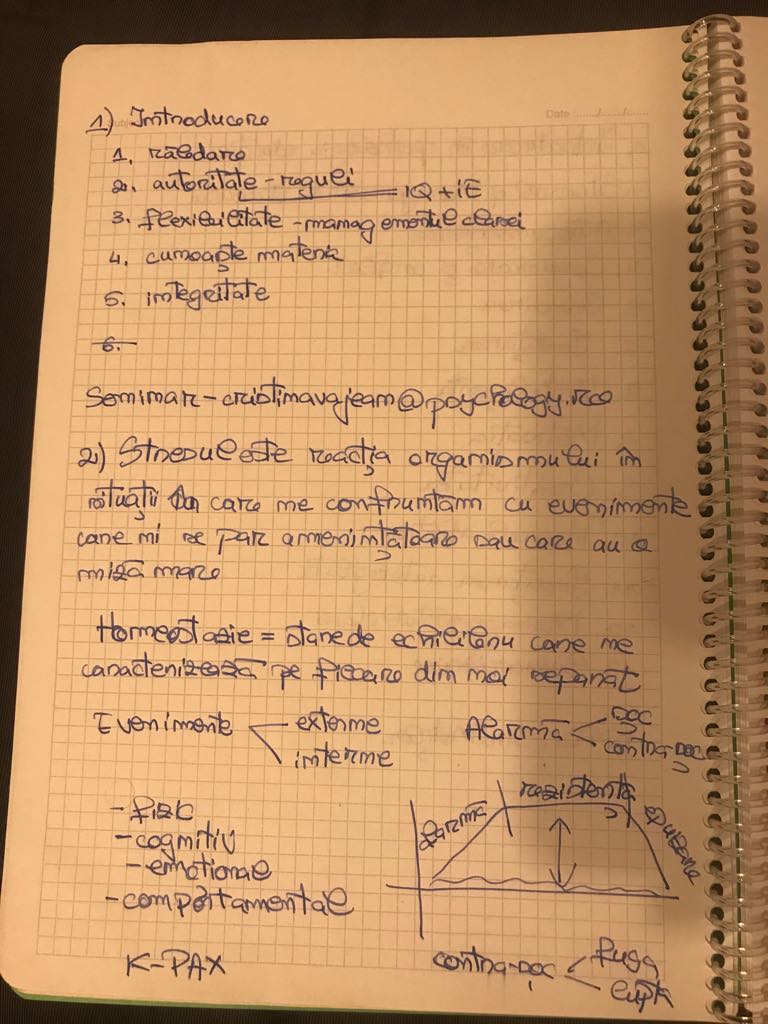 1) Introducere
Date :....../....../......
1. răbdare
2. autoritate - reguli
IQ + IE
3. flexibilitate - managementul clasei
4. cunoaște materia
5. integritate
6.
Seminar - cristinavajean@psychology.ro
2) Stresul este reacția organismului în
situații în care ne confruntăm cu evenimente
care ni se par amenințătoare sau care au o
miză mare
Homeostazie = stare de echilibru care ne
caracterizează pe fiecare din noi separat
Evenimente externe
interne
Alarmă șoc
contra-șoc
- fizic
- cognitiv
- emoțional
- comportamental
alarmă
rezistență
epuizare
K-PAX
contra-șoc fuga
luptă